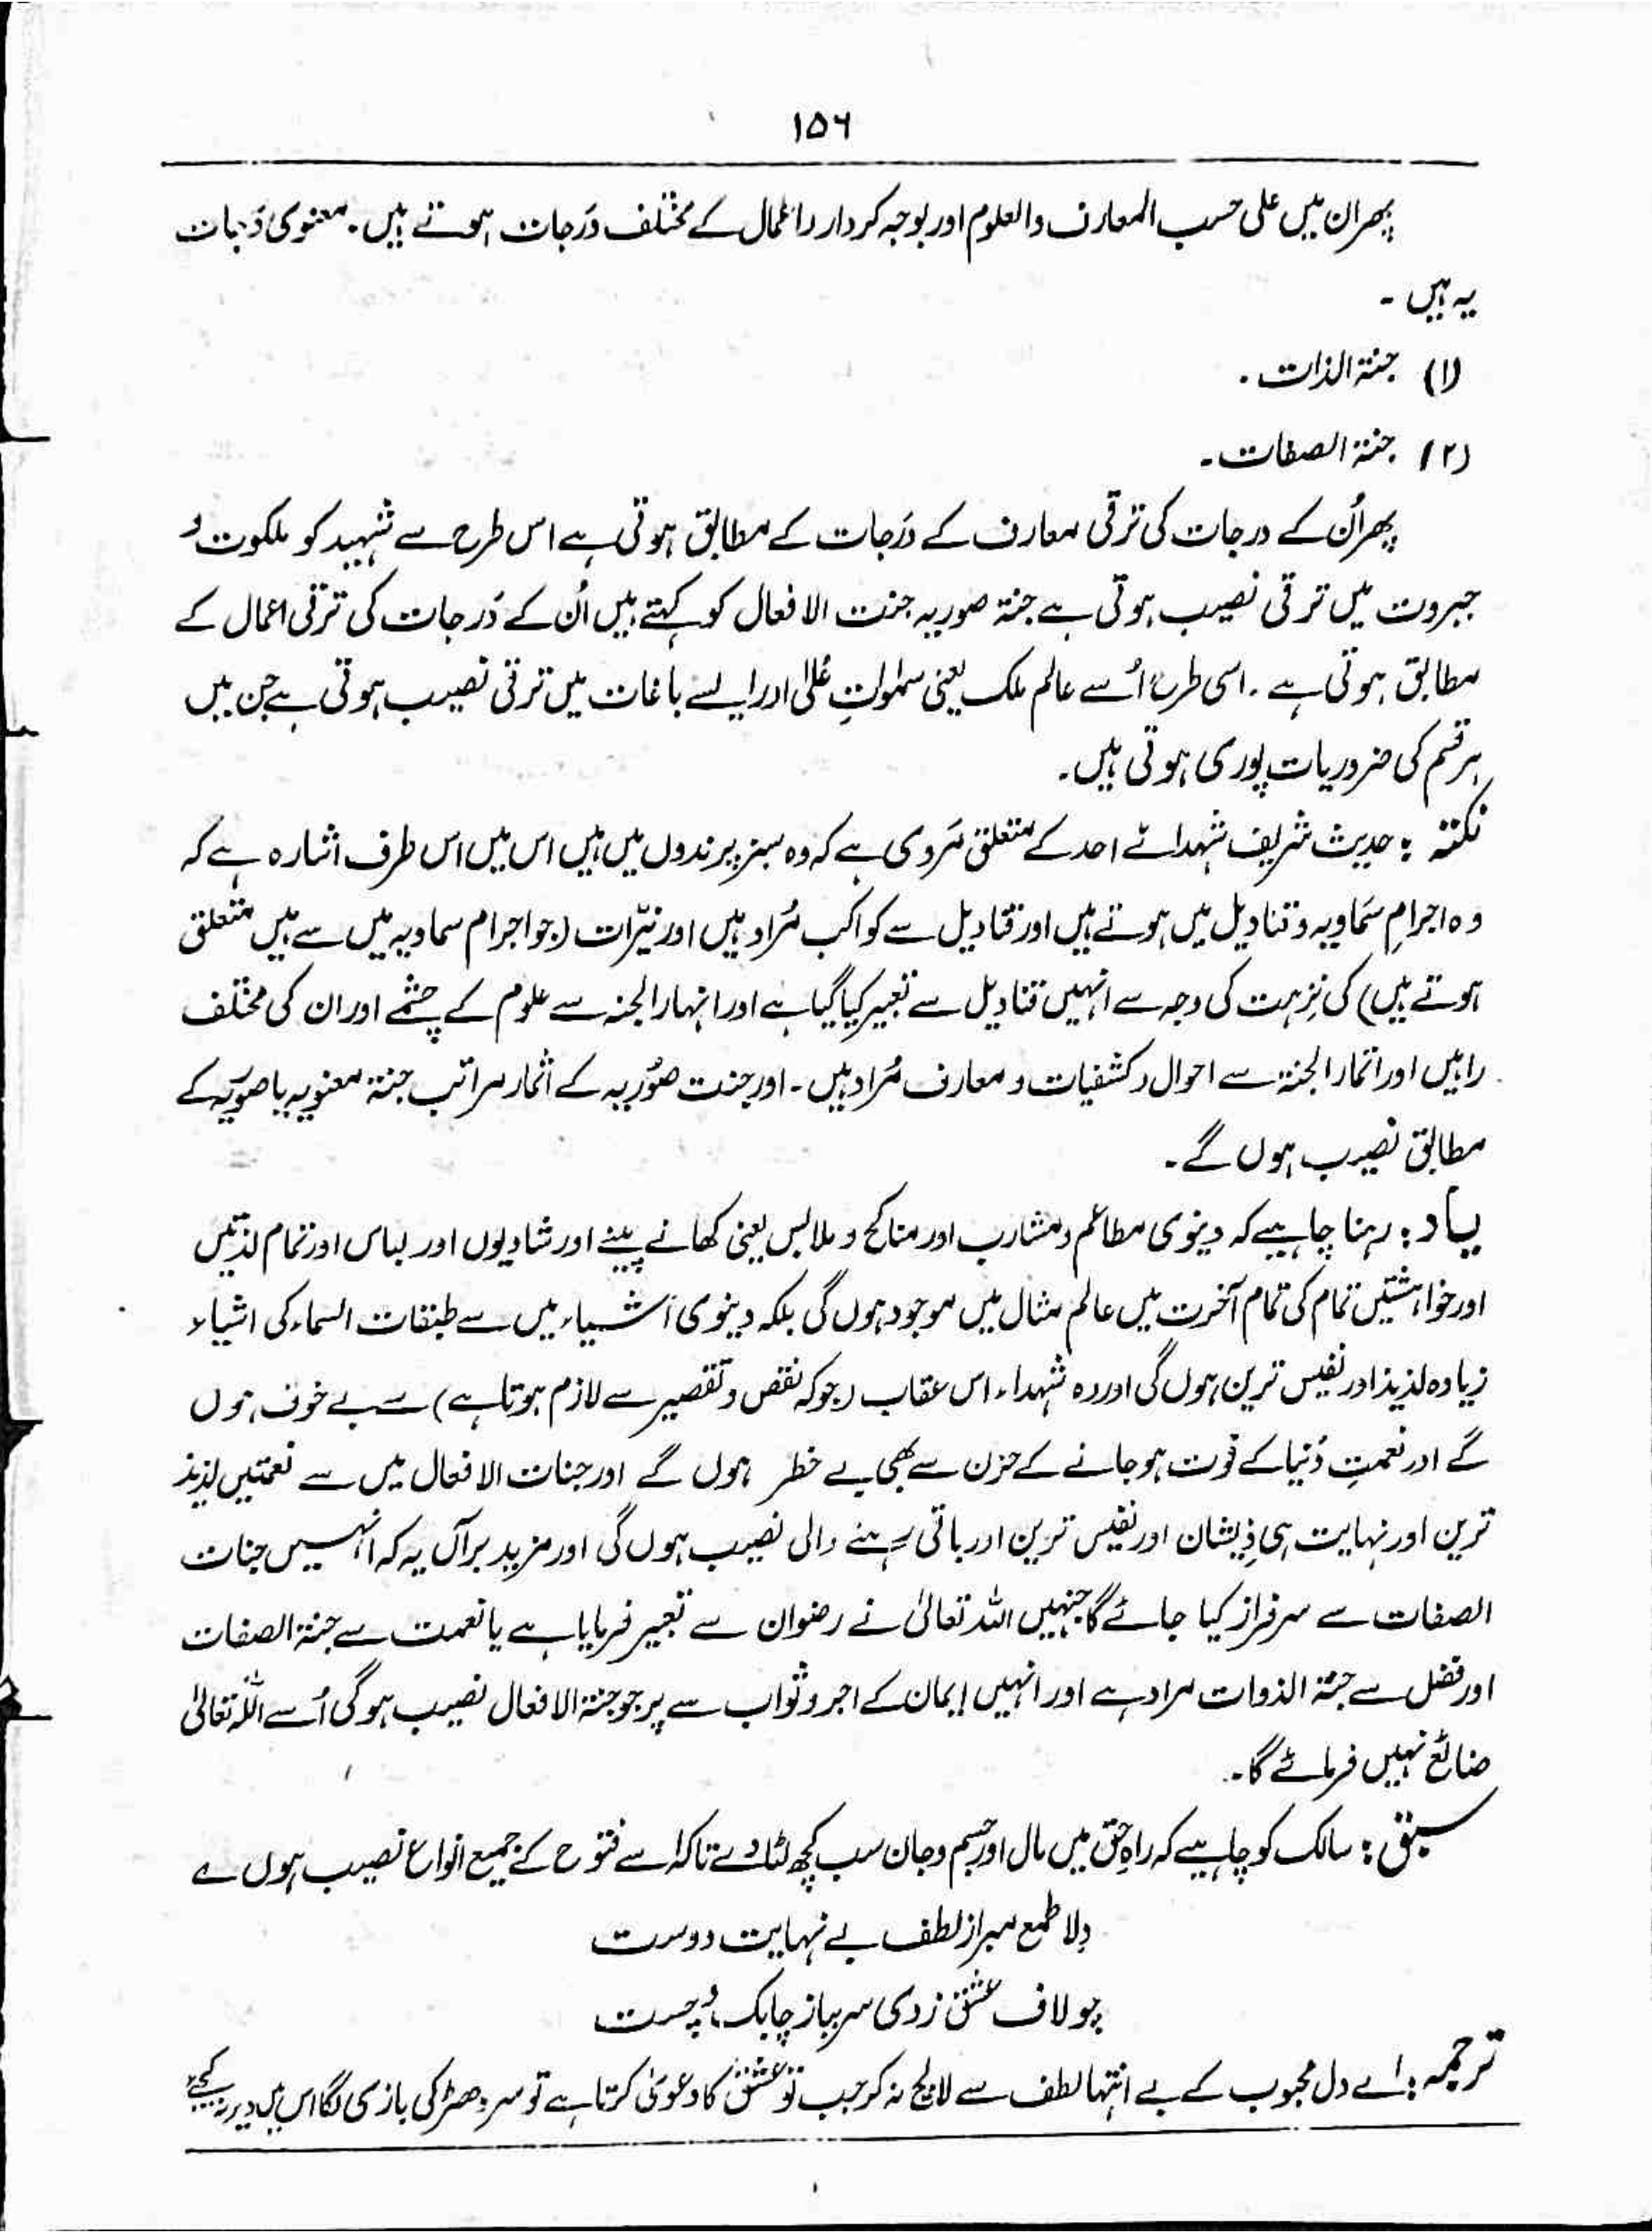 ۱۵۶
پھر ان میں علی حسب المعارف والعلوم اور بوجہ کردار و اعمال کے مختلف دَرجات ہوتے ہیں۔ معنوی دَرجات
یہ ہیں ۔
(۱) جنۃ الذات ۔
(۲) جنۃ الصفات ۔
پھر اُن کے درجات کی ترقی معارف کے دَرجات کے مطابق ہوتی ہے اس طرح سے شہید کو ملکوت و
جبروت میں ترقی نصیب ہوتی ہے جنۃ صوریہ جنت الافعال کو کہتے ہیں اُن کے دَرجات کی ترقی اعمال کے
مطابق ہوتی ہے ۔ اسی طرح اُسے عالم ملک یعنی سمٰوٰتِ عُلیٰ اور ایسے باغات میں ترقی نصیب ہوتی ہے جن میں
ہر قسم کی ضروریات پوری ہوتی ہیں۔
نکتہ : حدیث شریف شہدائے احد کے متعلق مَروی ہے کہ وہ سبز پرندوں میں ہیں اس میں اس طرف اشارہ ہے کہ
وہ اجرامِ سَماویہ و قنادیل میں ہوتے ہیں اور قنادیل سے کواکب مُراد ہیں اور نیّرات (جو اجرام سماویہ میں سے ہیں متعلق
ہوتے ہیں) کی نزہت کی وجہ سے انہیں قنادیل سے تعبیر کیا گیا ہے اور انہار الجنہ سے علوم کے چشمے اور ان کی مختلف
راہیں اور اثمار الجنۃ سے احوال و کشفیات و معارف مُراد ہیں ۔ اور جنت صُوریہ کے اثمار مراتب جنۃ معنویہ یا صوَریّہ کے
مطابق نصیب ہوں گے ۔
یاد : رہنا چاہیے کہ دینوی مطاعم و مشارب اور مناکح و ملابس یعنی کھانے پینے اور شادیوں اور لباس اور تمام لذتیں
اور خواہشتیں تمام کی تمام آخرت میں عالم مثال میں موجود ہوں گی بلکہ دینوی اَشیاء میں سے طبقات السماء کی اشیاء
زیادہ لذیذ اور نفیس ترین ہوں گی اور وہ شہداء اس عقاب (جو کہ نقص و تقصیر سے لازم ہوتا ہے) سے بے خوف ہوں
گے اور نعمتِ دُنیا کے فوت ہو جانے کے حزن سے بھی بے خطر ہوں گے اور جنات الافعال میں سے نعمتیں لذیذ
ترین اور نہایت ہی ذِیشان اور نفیس ترین اور باقی رہنے والی نصیب ہوں گی اور مزید برآں یہ کہ انہیں جنات
الصفات سے سرفراز کیا جائے گا جنہیں اللہ تعالیٰ نے رضوان سے تعبیر فرمایا ہے یا نعمت سے جنۃ الصفات
اور فضل سے جنۃ الذوات مراد ہے اور انہیں ایمان کے اجر و ثواب سے پر جو جنۃ الافعال نصیب ہوگی اُسے اللہ تعالیٰ
ضائع نہیں فرمائے گا۔
سبق : سالک کو چاہیے کہ راہِ حق میں مال اور جسم و جان سب کچھ لٹا دے تاکہ اسے فتوح کے جمیع انواع نصیب ہوں ؎
دِلا طمع مبر از لطف بے نہایت دوست
چو لاف عشق زدی سر بباز چابک و چست
ترجمہ : اے دل محبوب کے بے انتہا لطف سے لالچ نہ کر جب تو عشق کا دعویٰ کرتا ہے تو سر دھڑ کی بازی لگا اس میں دیر نہ کیجئے